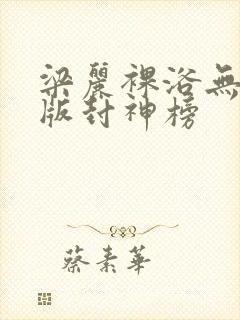 梁麗裸浴無
版封神榜
蔡素華